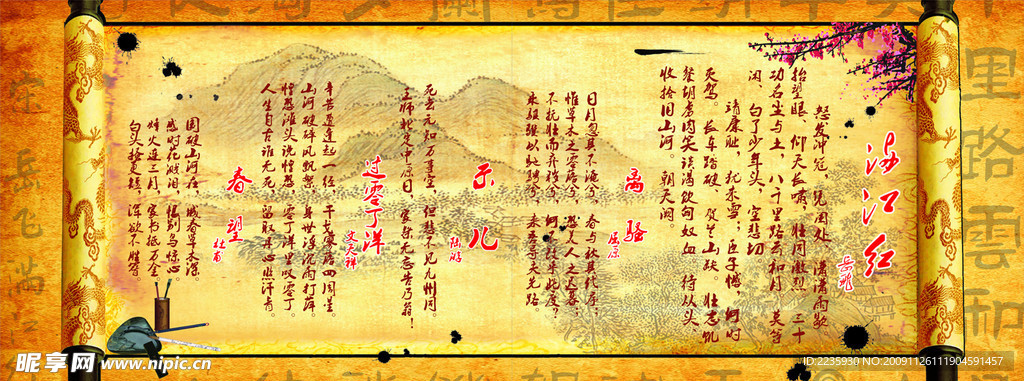 满江红
岳飞
怒发冲冠,凭阑处 潇潇雨歇
抬望眼、仰天长啸,壮怀激烈 三十
功名尘与土,八千里路云和月 莫等
闲、白了少年头,空悲切
靖康耻,犹未雪;臣子憾,何时
灭驾。长车踏破。贺兰山缺 壮志饥
餐胡虏肉笑谈渴饮匈奴血 待从头
收拾旧山河。朝天阙。
离骚
屈原
日月忽其不淹兮,春与秋其代序;
惟草木之零落兮,恐美人之迟暮;
不抚壮而弃秽兮,何不改乎此度?
乘骐骥以驰骋兮,来吾导夫先路。
示儿
陆游
死去元知万事空,但悲不见九州同。
王师北定中原日,家祭无忘告乃翁!
过零丁洋
文天祥
辛苦遭逢起一经,干戈寥落四周星。
山河破碎风飘絮,身世浮沉雨打萍。
惶恐滩头说惶恐,零丁洋里叹零丁。
人生自古谁无死,留取丹心照汗青。
春望
杜甫
国破山河在,城春草木深。
感时花溅泪,恨别鸟惊心。
烽火连三月,家书抵万金。
白头搔更短,浑欲不胜簪。
里路雲和
昵享网 www.nipic.cn
ID:2235930 NO:20091126111904591457